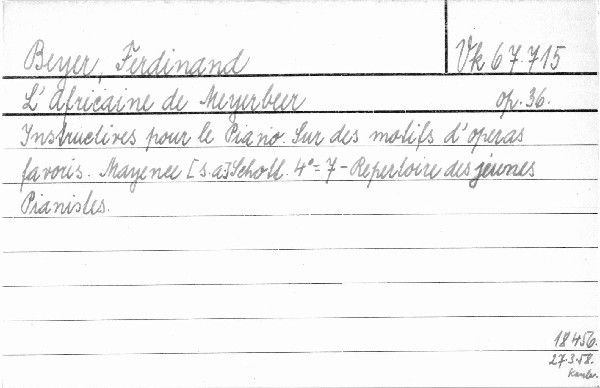 Beyer, Ferdinand Vk 67.715
L'Africaine de Meyerbeer op. 36.
Instructives pour le Piano. Sur des motifs d'operas
favoris. Mayence [s.a.] Schott. 4° = 7 - Repertoire des jeunes
Pianistes.
18456.
27.3.58.